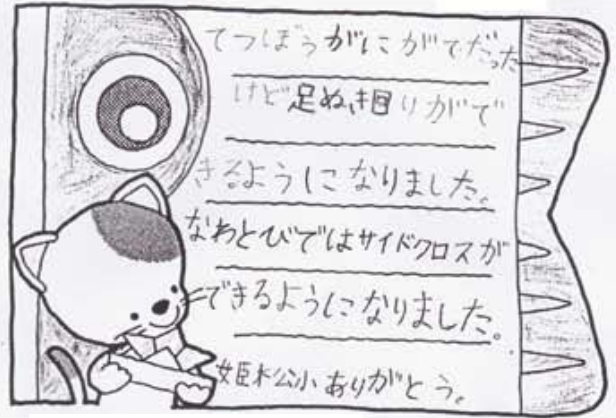 てつぼうがにがてだった
けど足ぬき回りがで
きるようになりました。
なわとびではサイドクロスが
できるようになりました。
姫木公小ありがとう。